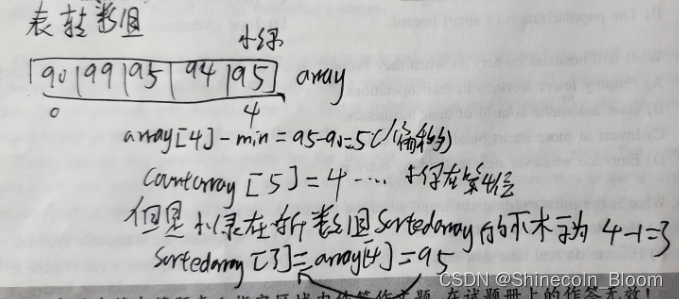 表转数组
小绿
90 99 95 94 95 array
0 4
array[4]-min=95-90=5 (偏移
countarray [5]=4 ···· 小绿在第4位
但是 小绿在新数组sortedarray的下标为 4-1=3
sortedarray [3]=array[4]=95
CSDN @Shinecoln_Bloom
在试题册上的作答无效!